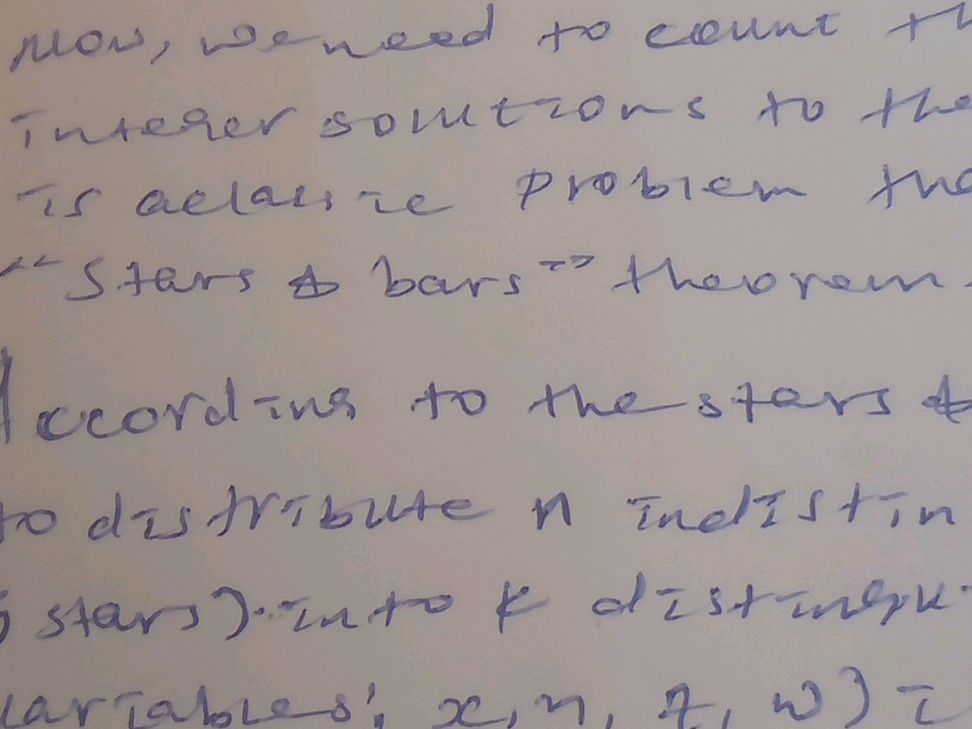 Now, we need to count th
integer solutions to the
is a classic problem tha
"Stars & bars" theorem.
According to the stars &
to distribute n indistin
stars) into k distingu-
variables: x, n, z, w) i